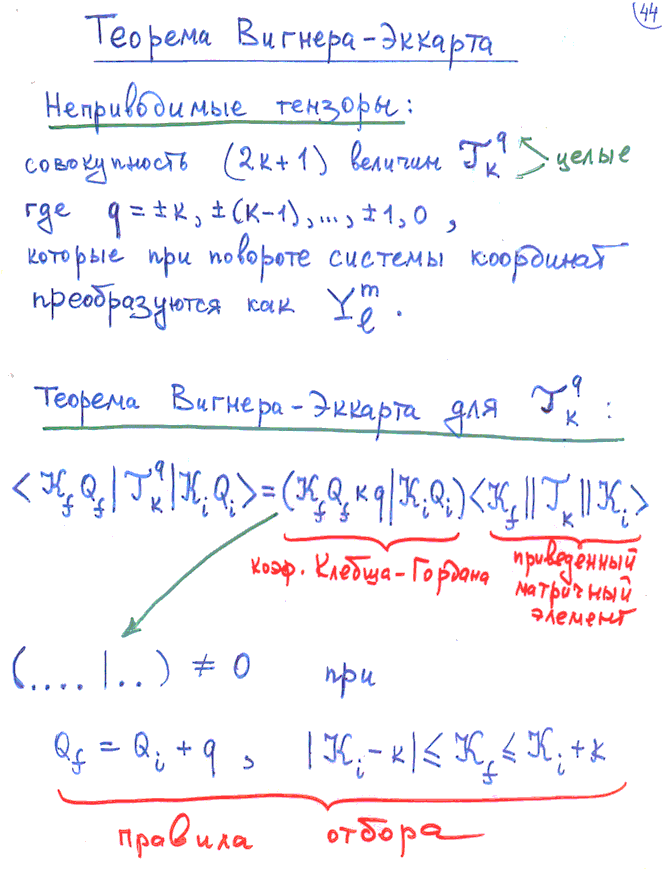 44
Теорема Вигнера-Эккарта
Неприводимые тензоры:
совокупность (2к+1) величин T_k^q целые
где q = ±k, ±(k-1), ..., ±1, 0 ,
которые при повороте системы координат
преобразуются как Y_ℓ^m .
Теорема Вигнера-Эккарта для T_k^q :
<K_f Q_f | T_k^q | K_i Q_i> = (K_f Q_f k q | K_i Q_i) <K_f || T_k || K_i>
коэф. Клебша-Гордана
приведённый
матричный
элемент
(....|..) ≠ 0 при
Q_f = Q_i + q , |K_i - k| ≤ K_f ≤ K_i + k
правила отбора